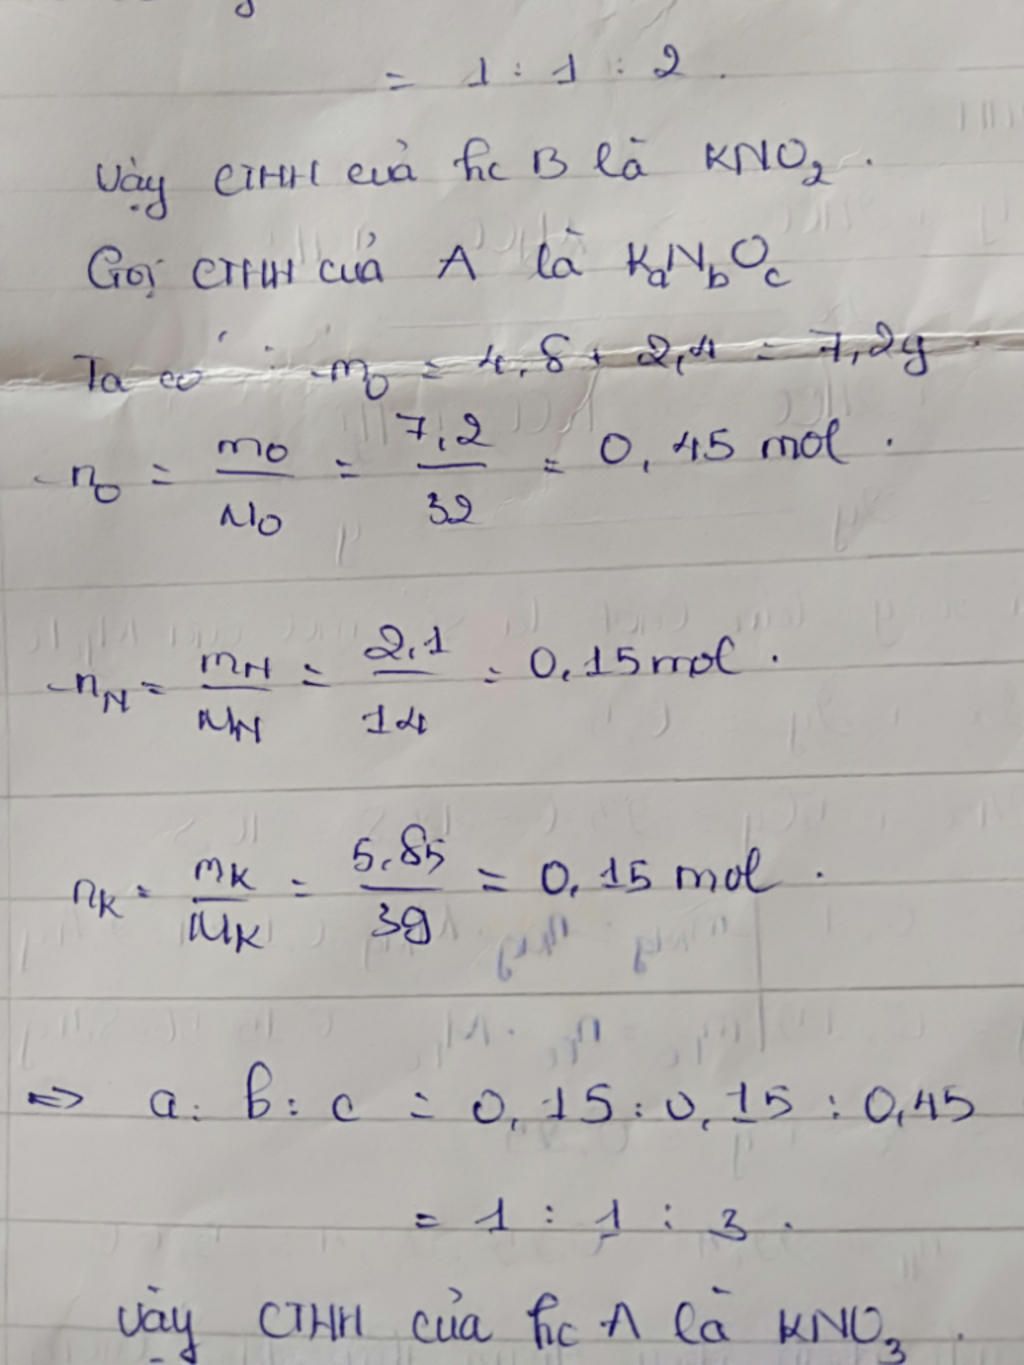 = 1 : 1 : 2 .
Vậy CTHH của hc B là KNO₂ .
Gọi CTHH của A là KₐN_bO_c
Ta có : m₀ = 4,8 + 2,4 = 7,2g .
- n₀ = m₀ / M₀ = 7,2 / 32 = 0,45 mol .
- n_N = m_N / M_N = 2,1 / 14 = 0,15 mol .
n_K = m_K / M_K = 5,85 / 39 = 0,15 mol .
=> a : b : c = 0,15 : 0,15 : 0,45
= 1 : 1 : 3 .
Vậy CTHH của hc A là KNO₃ .